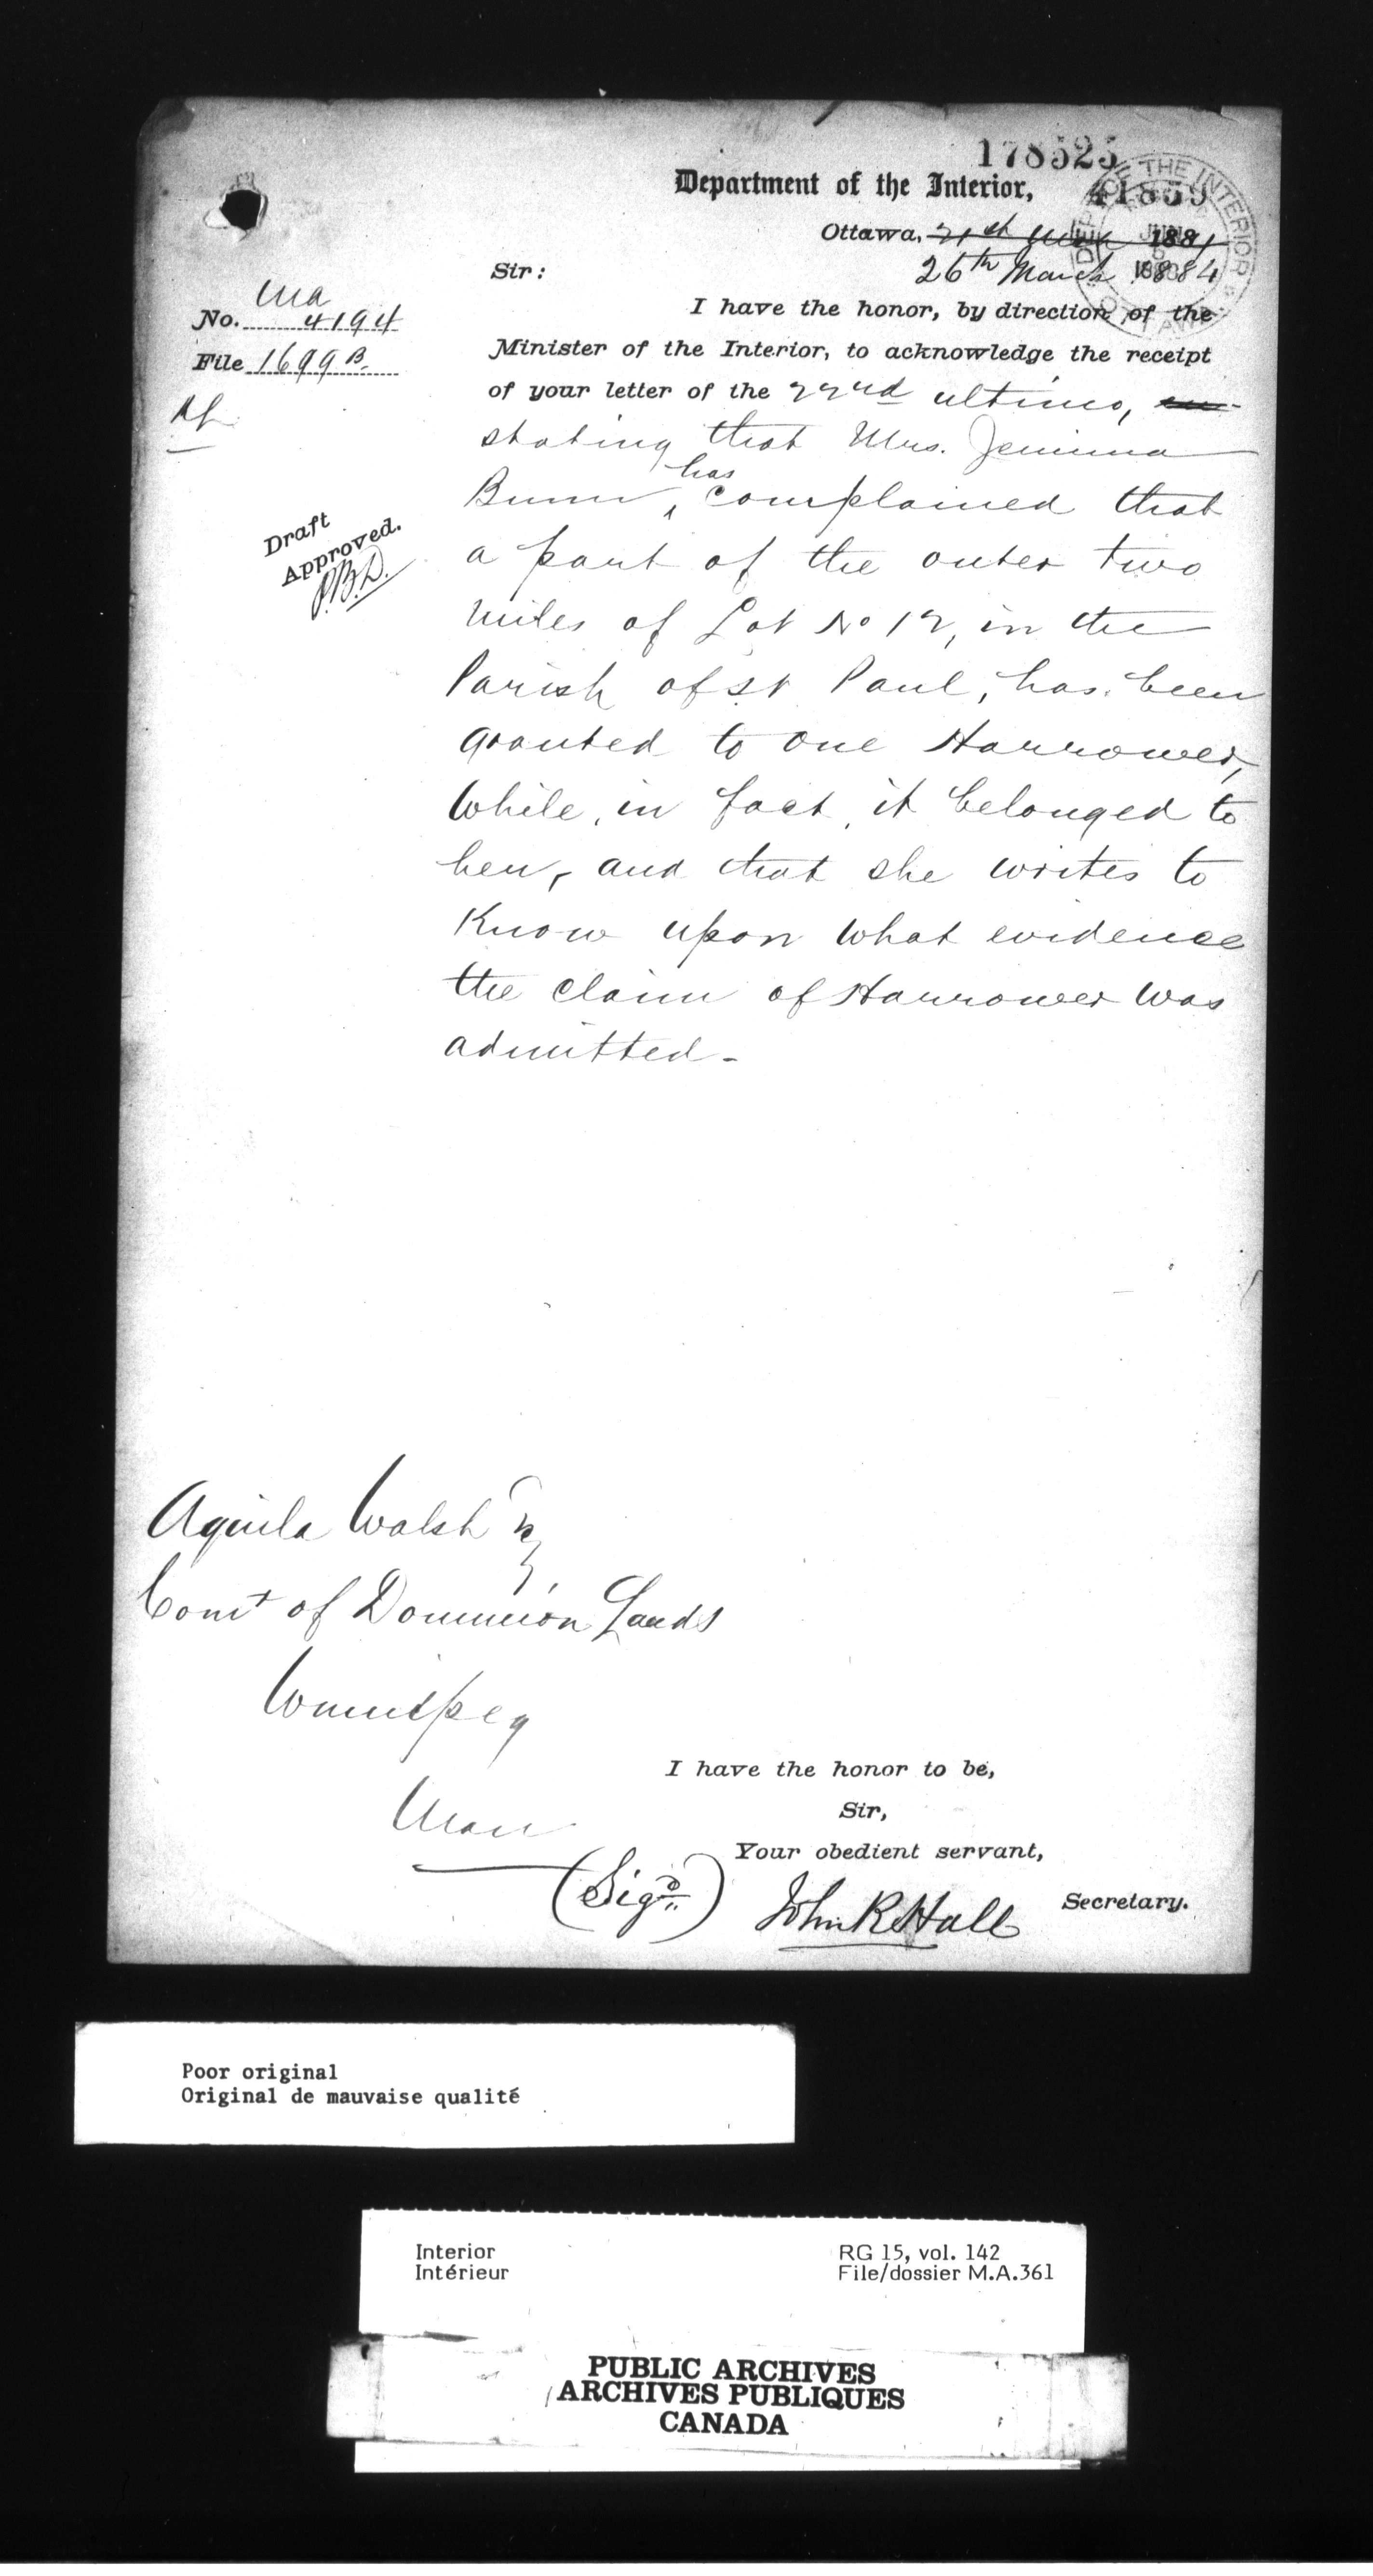 178525
Department of the Interior,
41859
DEPT OF THE INTERIOR
OTTAWA
Ottawa, 21st 1881
26th March 1884
Sir:
No. Ma 4194
File 1699 B.
I have the honor, by direction of the
Minister of the Interior, to acknowledge the receipt
of your letter of the 22nd ultimo,
stating that Mrs. Jemima
Bunn, has complained that
a part of the outer two
miles of Lot No 12, in the
Parish of St Paul, has been
granted to one Harrower,
while, in fact, it belonged to
her, and that she writes to
know upon what evidence
the claim of Harrower was
admitted.
Draft
Approved.
P.B.D.
Aquila Walsh Esq,
Comr of Dominion Lands
Winnipeg
Man
I have the honor to be,
Sir,
Your obedient servant,
(Sigd) John R Hall Secretary.
Poor original
Original de mauvaise qualité
Interior
Intérieur
RG 15, vol. 142
File/dossier M.A.361
PUBLIC ARCHIVES
ARCHIVES PUBLIQUES
CANADA